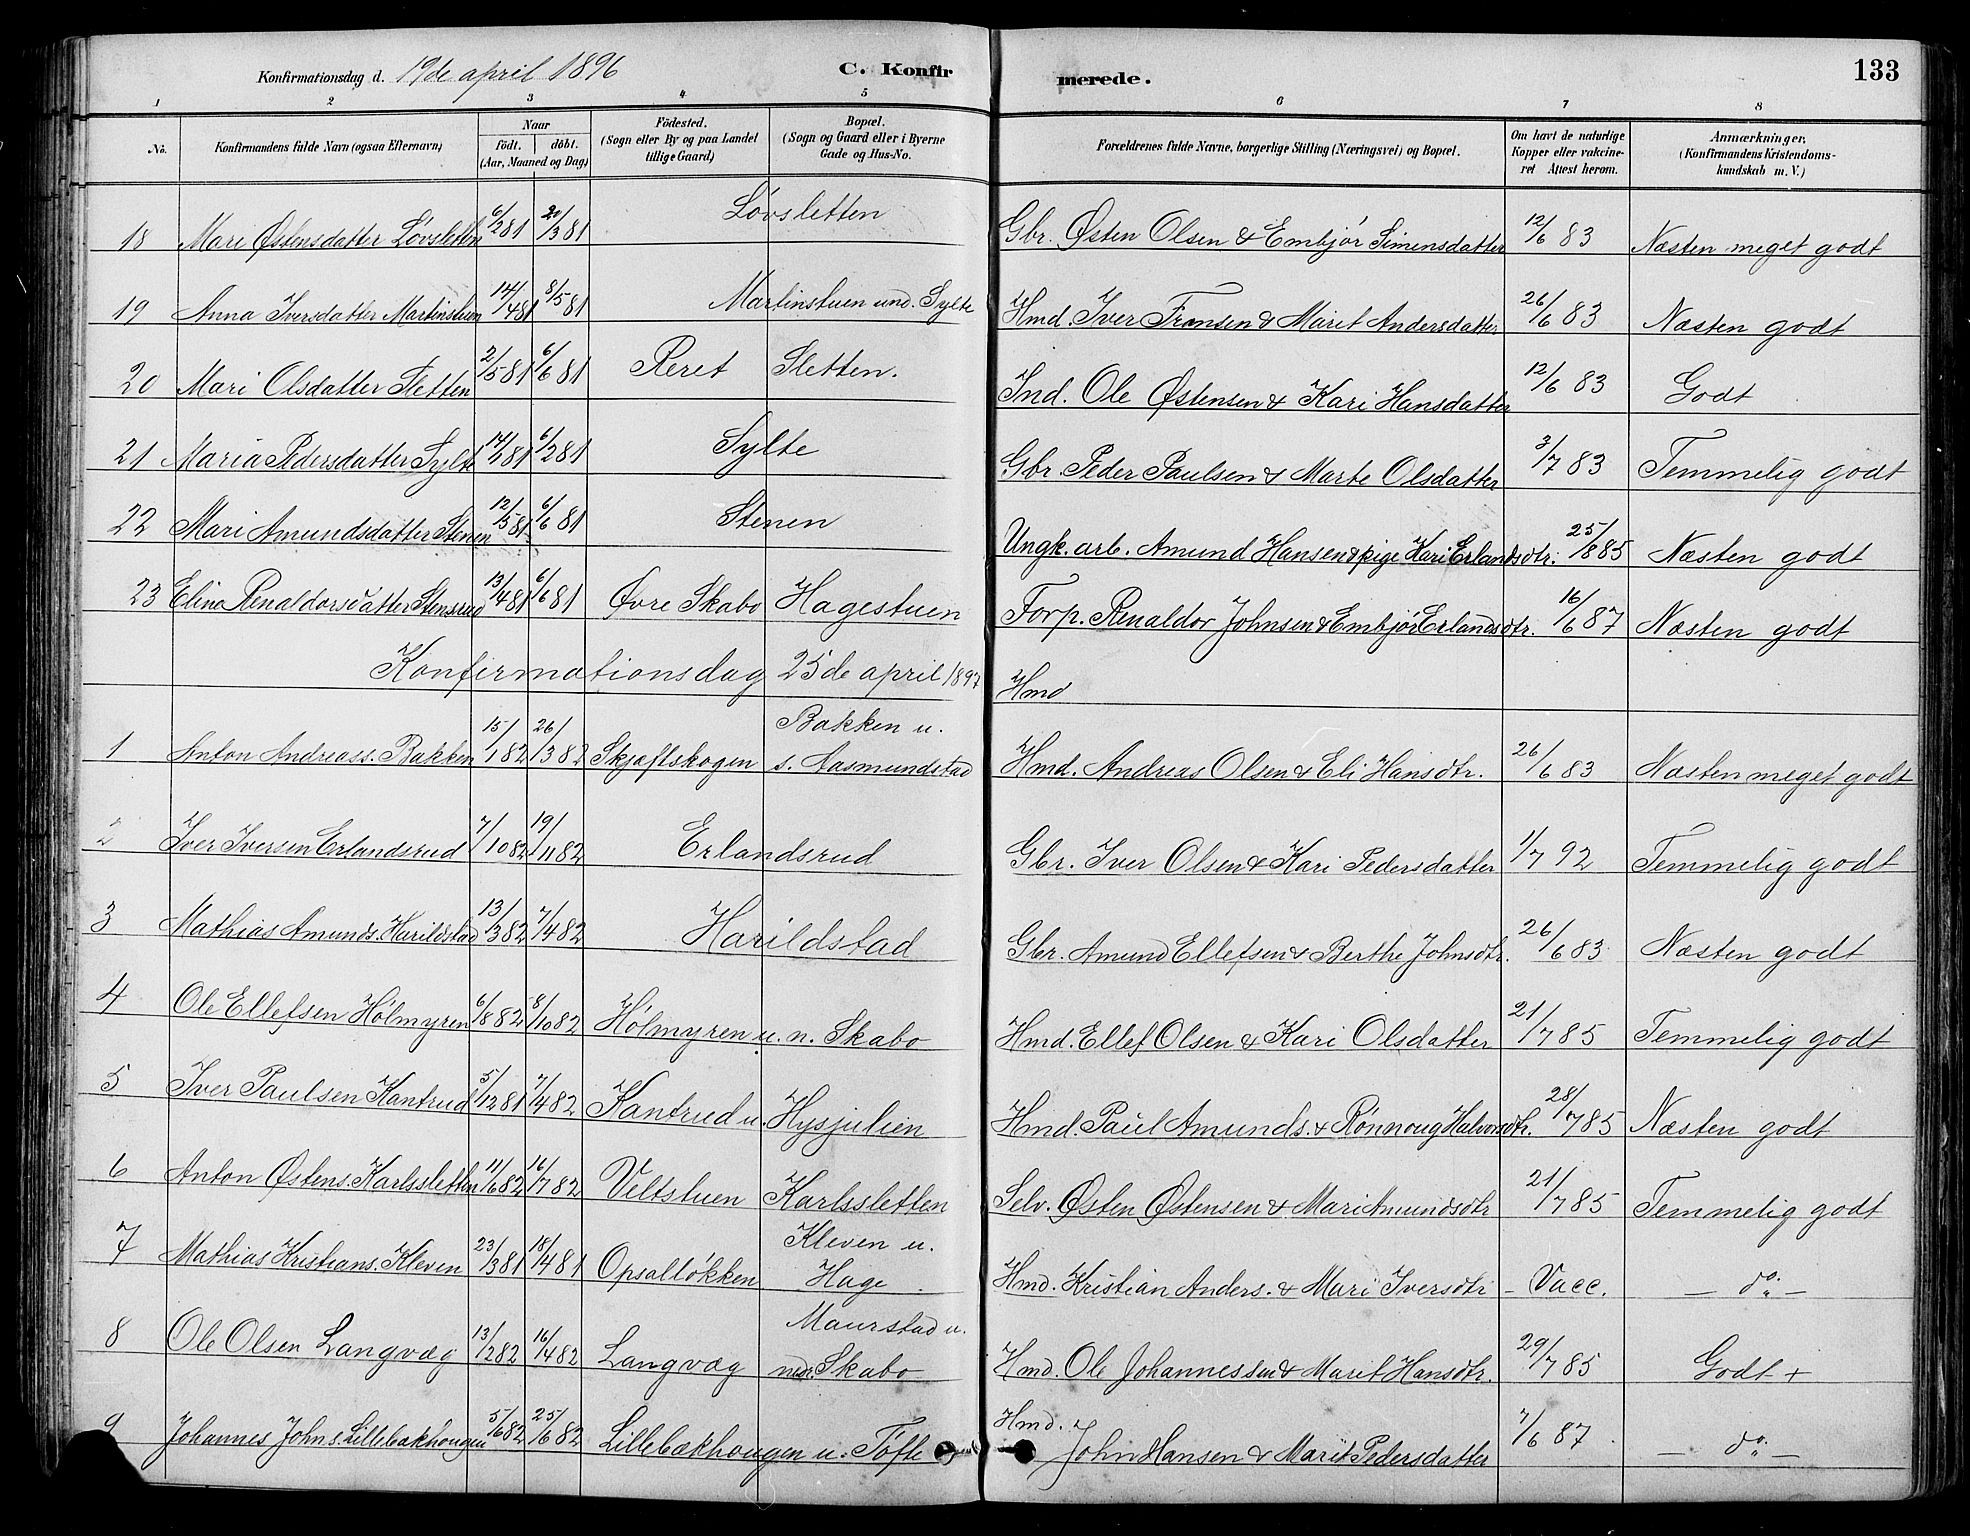 133
Konfirmationsdag d. 19de april 1896 C. Konfirmerede.
1 2 3 4 5 6 7 8
No. Konfirmandens fulde Navn (ogsaa Efternavn) Naar födt. döbt. (Aar, Maaned og Dag) Födested. (Sogn eller By og paa Landet tillige Gaard) Bopæl. (Sogn og Gaard eller i Byerne Gade og Hus-No. Forældrenes fulde Navne, borgerlige Stilling (Næringsvei) og Bopæl. Om havt de naturlige Kopper eller vakcineret Attest herom. Anmærkninger, (Konfirmandens Kristendomskundskab m. V.)
18 Mari Østensdatter Løvsletten 6/2 81 20/3 81 Løvsletten Gbr. Østen Olsen & Embjør Simensdatter 12/6 83 Næsten meget godt
19 Anna Iversdatter Martinstuen 14/4 81 8/5 81 Martinstuen und. Sylte Hmd. Iver Fransen & Marit Andersdatter 26/6 83 Næsten godt
20 Mari Olsdatter Sletten 2/5 81 6/6 81 Reret Sletten. Ind. Ole Østensen & Kari Hansdatter 12/6 83 Godt
21 Maria Pedersdatter Sylte 14/1 81 6/2 81 Sylte Gbr. Peder Paulsen & Marte Olsdatter 3/7 83 Temmelig godt
22 Mari Amundsdatter Stenen 12/5 81 6/6 81 Stenen Ungk. arb. Amund Hansen & pige Kari Erlandsdtr. 25/8 85 Næsten godt
23 Elina Renaldorsdatter Stensrud 13/4 81 6/6 81 Øvre Skabo Hagestuen Forp. Renaldor Johnsen & Embjør Erlandsdtr. 16/6 87 Næsten godt
Konfirmationsdag 25de april 1897 Hmd
1 Anton Andreass. Bakken 15/1 82 26/3 82 Skjæftskogen Bakken u. s. Aasmundstad Hmd. Andreas Olsen & Eli Hansdtr. 26/6 83 Næsten meget godt
2 Iver Iversen Erlandsrud 7/10 82 19/11 82 Erlandsrud Gbr. Iver Olsen & Kari Pedersdatter 1/7 92 Temmelig godt
3 Mathias Amunds. Harildstad 13/3 82 7/4 82 Harildstad Gbr. Amund Ellefsen & Berthe Johnsdtr. 26/6 83 Næsten godt
4 Ole Ellefsen Hølmyren 6/8 82 8/10 82 Hølmyren u. n. Skabo Hmd. Ellef Olsen & Kari Olsdatter 21/7 85 Temmelig godt
5 Iver Paulsen Kantrud 5/12 81 7/4 82 Kantrud u. Hysjulien Hmd. Paul Amunds. & Rønnoug Halvorsdtr. 28/7 85 Næsten godt
6 Anton Østens. Karlssletten 11/6 82 16/7 82 Veltstuen Karlssletten Selv. Østen Østensen & Mari Amundsdtr 21/7 85 Temmelig godt
7 Mathias Kristians. Kleven 23/3 81 18/4 81 Opsalløkken Kleven u. Hage Hmd. Kristian Anders. & Mari Iversdtr - Vacc. — do. —
8 Ole Olsen Langvæg 13/2 82 16/4 82 Langvæg Maurstad u. nedr. Skabo Hmd. Ole Johannessen & Marit Hansdtr. 29/7 85 Godt +
9 Johannes Johns. Lillebækhougen 5/6 82 25/6 82 Lillebækhougen u. Tofte Hmd. John Hansen & Marit Pedersdatter 7/6 87 — do. —